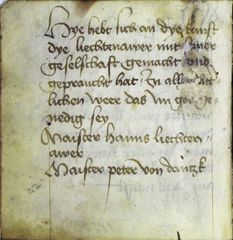 Hye hebt sich an dye kunst
dye liechtenawer mit seiner
geselschaft gemacht und
gepraucht hat in aller ritt
lichen weer das im got ge
nedig sey
Maister hanns liechten
awer
Maister peter von dantzk